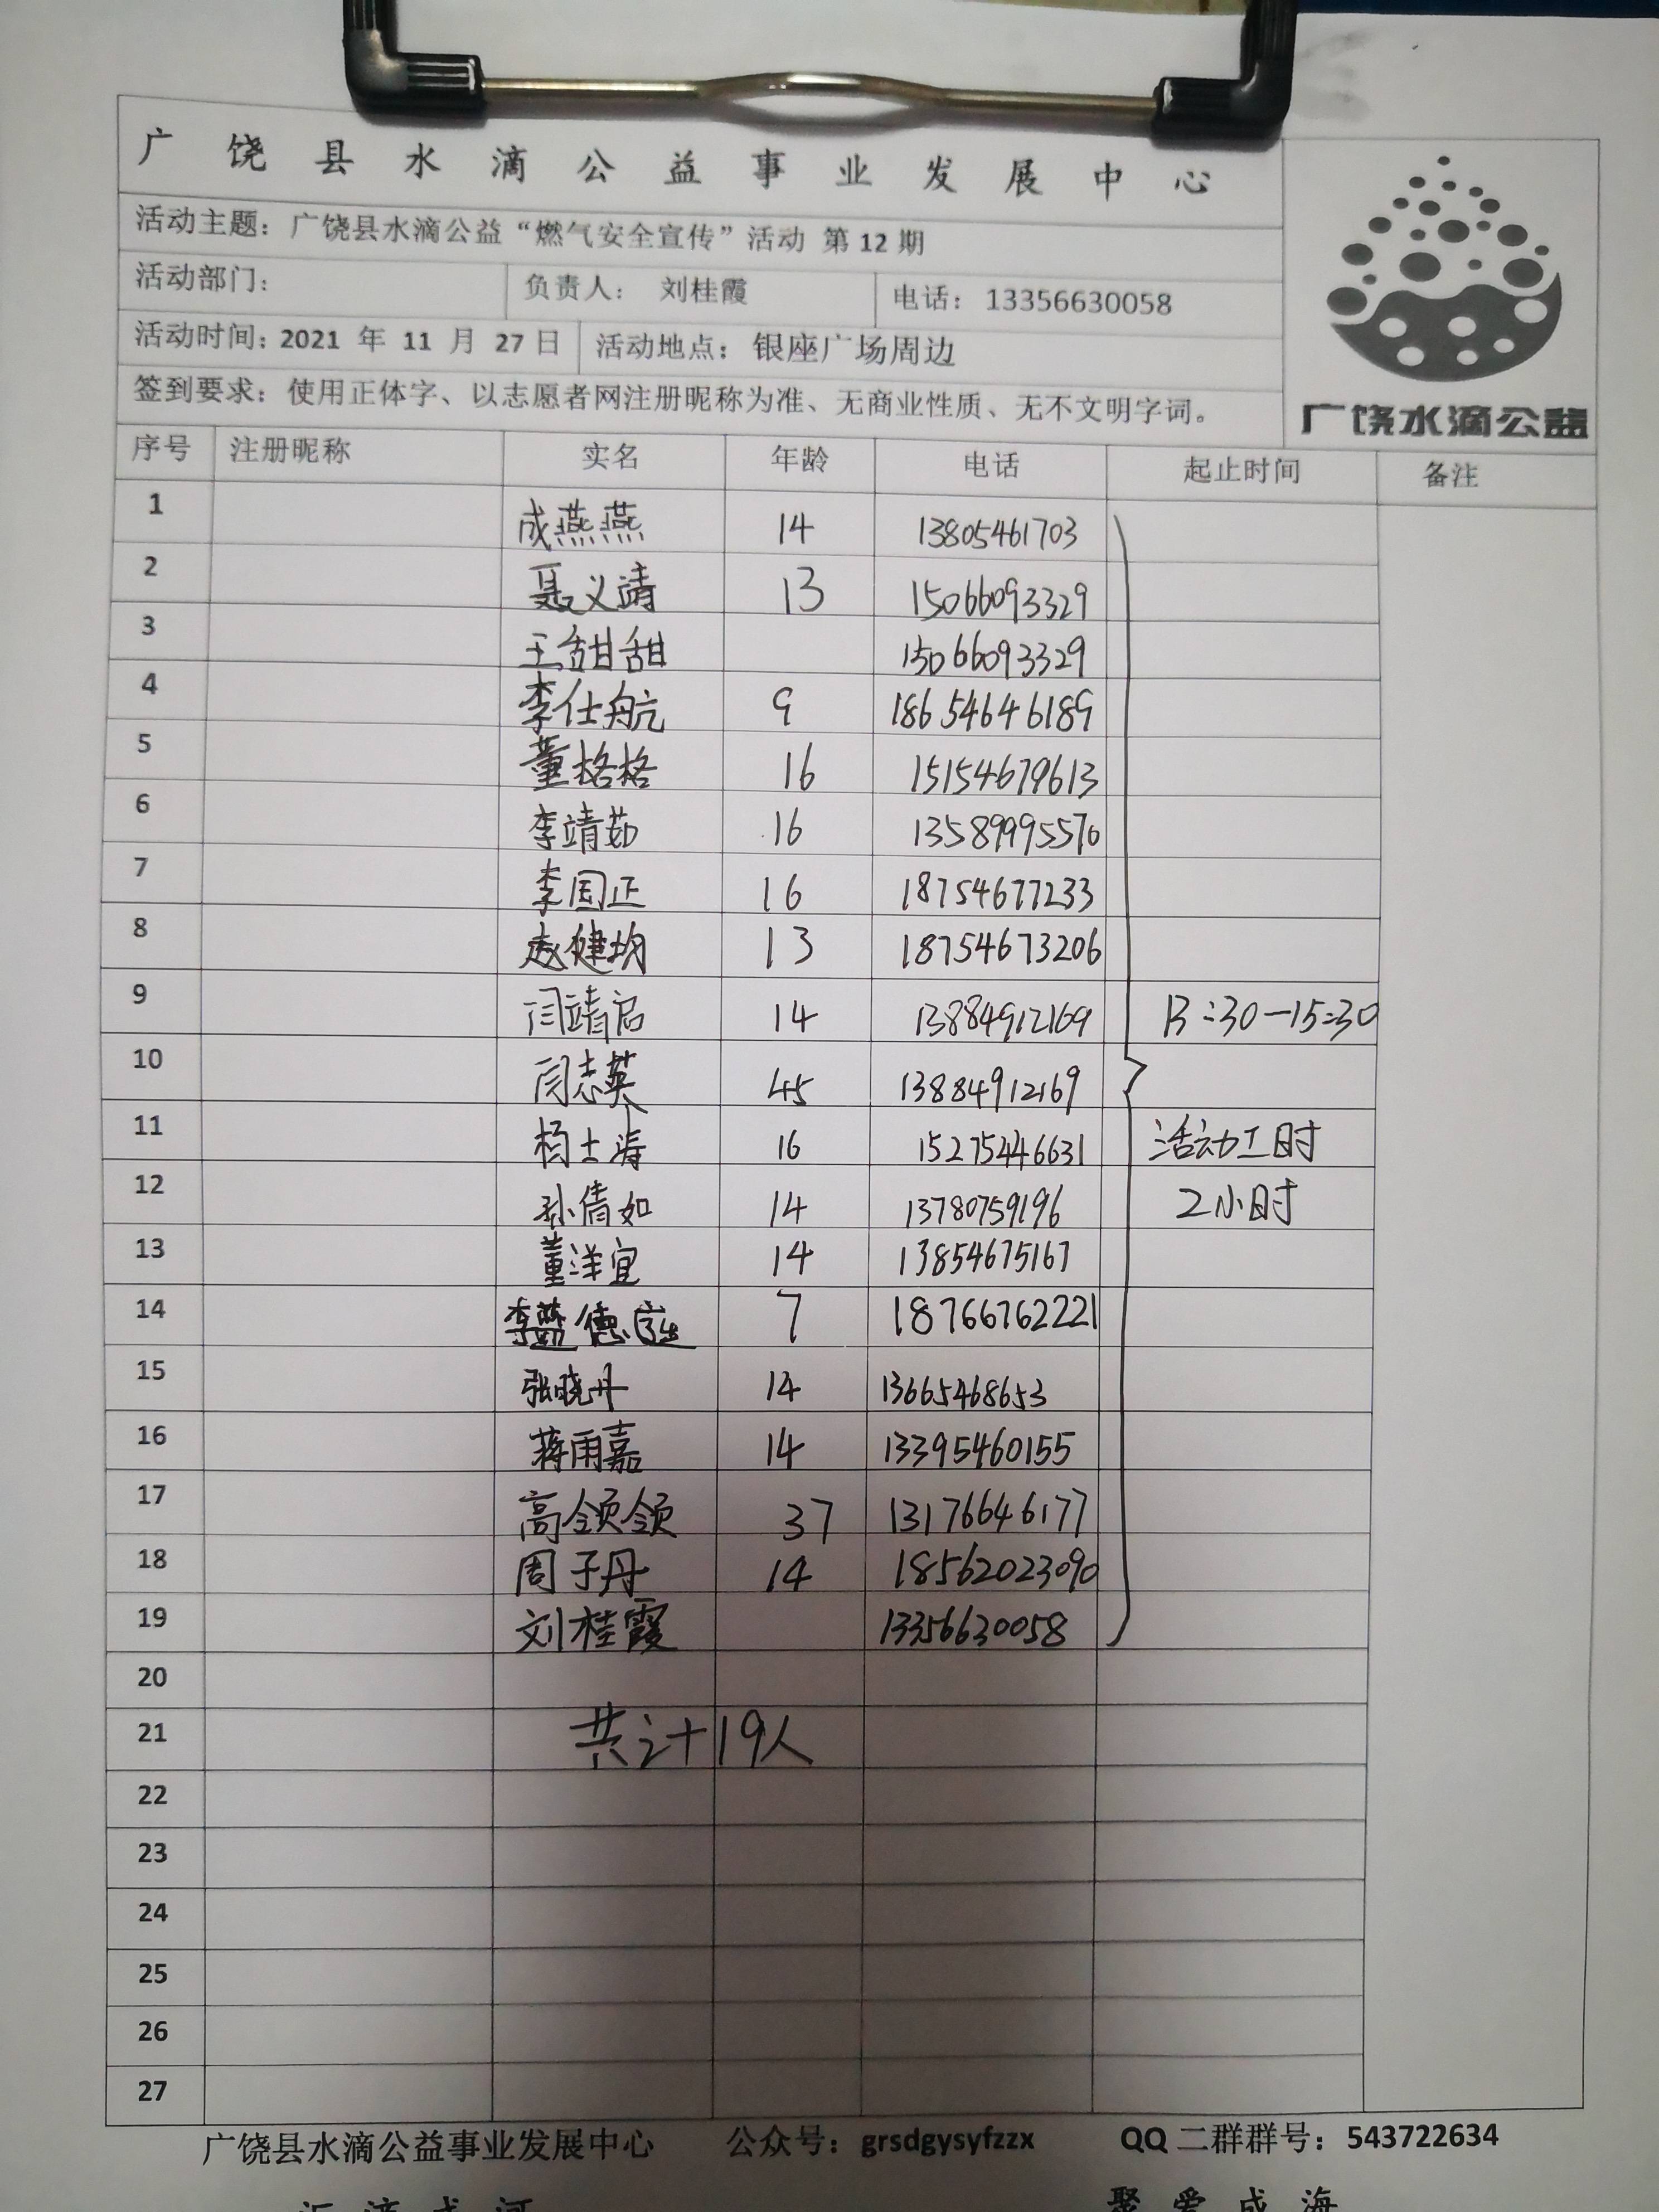 广饶县水滴公益事业发展中心
活动主题：广饶县水滴公益“燃气安全宣传”活动 第 12 期
活动部门： 负责人： 刘桂霞 电话：13356630058
活动时间：2021 年 11 月 27 日 活动地点：银座广场周边
签到要求：使用正体字、以志愿者网注册昵称为准、无商业性质、无不文明字词。
广饶水滴公益
序号 注册昵称 实名 年龄 电话 起止时间 备注
1 成燕燕 14 13805461703
2 聂义靖 13 15066093329
3 王甜甜 15066093329
4 李仕航 9 18654646189
5 董格格 16 15154679613
6 李靖茹 16 13589995570
7 李国正 16 18754677233
8 赵健均 13 18754673206
9 闫靖启 14 13884912169 13:30-15:30
10 闫志英 45 13884912169
11 杨士涛 16 15275446631 活动工时
12 孙倩如 14 13780759196 2小时
13 董洋宜 14 13854675167
14 李 德 7 18766762221
15 张晓丹 14 13665468653
16 蒋雨嘉 14 13395460155
17 高领领 37 13176646177
18 周子丹 14 18562023090
19 刘桂霞 13356630058
20
21 共计19人
22
23
24
25
26
27
广饶县水滴公益事业发展中心 公众号：grsdgysyfzzx QQ 二群群号：543722634
汇滴成河 聚爱成海